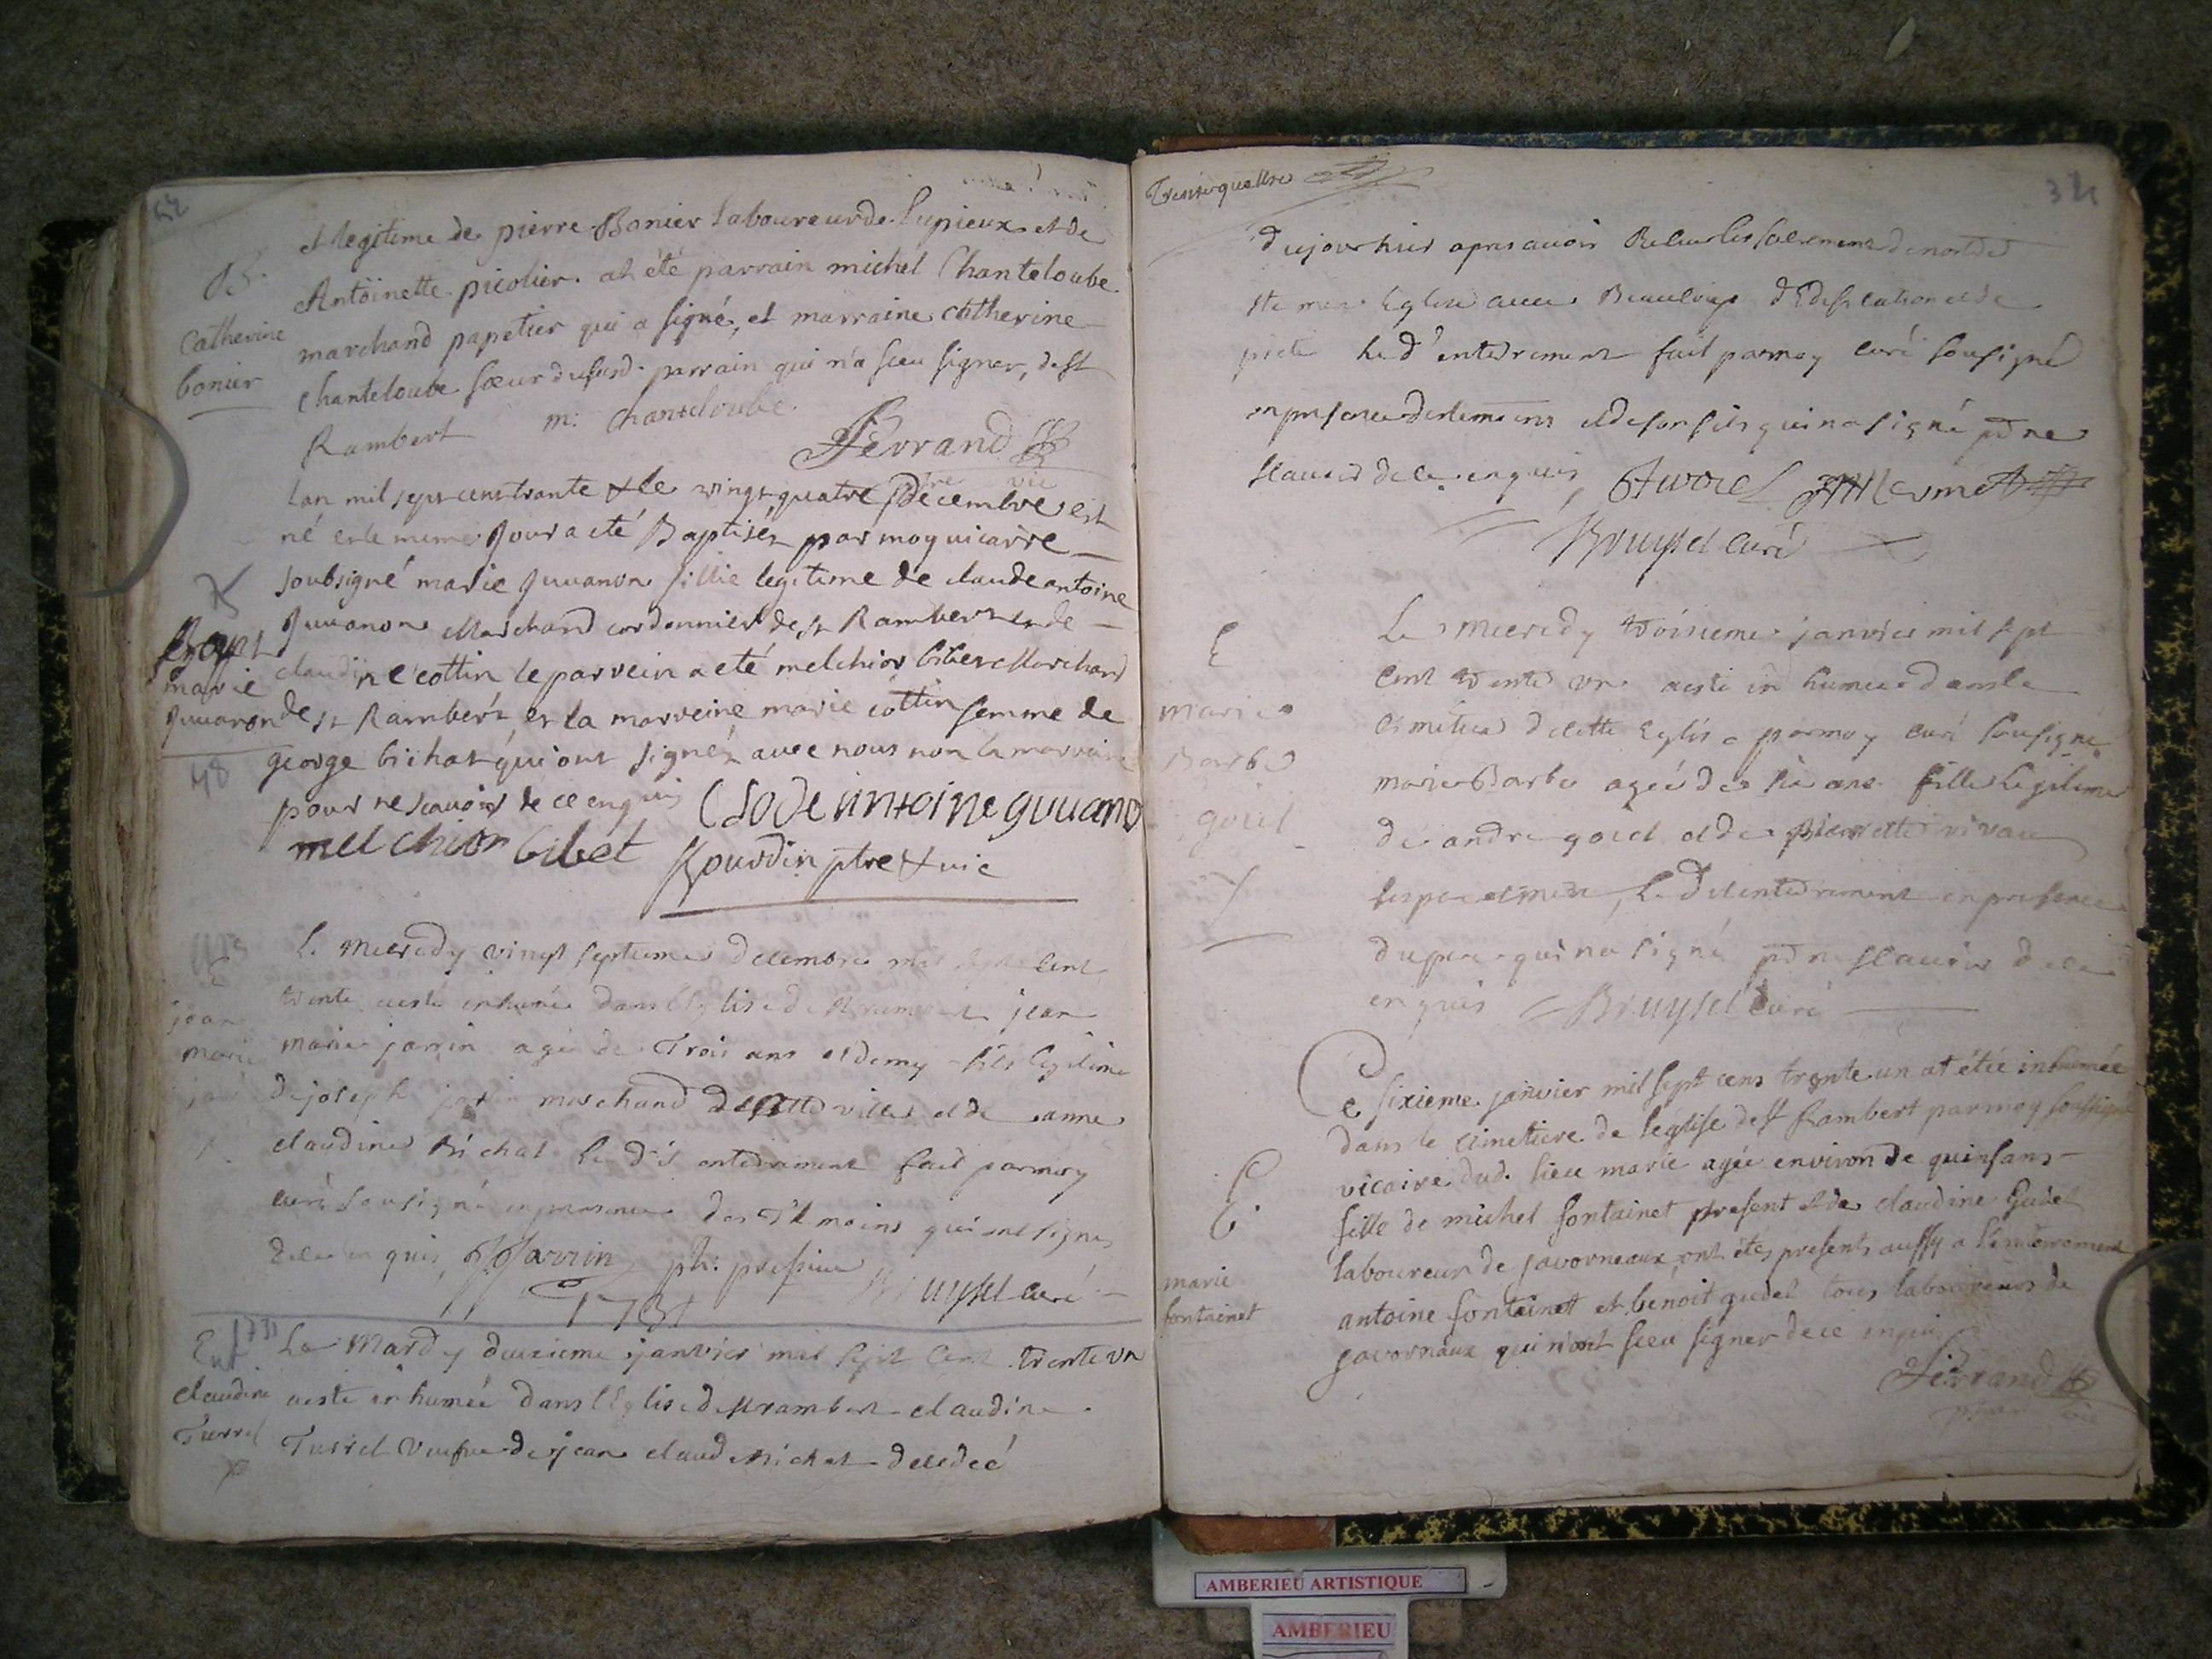 et legitime de pierre Bonier laboureur de lupieux et de
B.
Antoinette picolier. at été parrain michel Chanteloube
Catherine
bonier
marchand papetier qui a signé, et marraine catherine
chanteloube soeur dususd. parrain qui n'a sceu signer, de st
Rambert m: chanteloube.
Ferrand
ptre vic
Lan mil sept cens trante & le vingt quatre decembre est
né et le meme Jour a eté Baptisés par moy vicaire
soubsigné marie Juuanon fillie legitime de claude antoine
Juuanon Marchand cordonnier de st Rambert et de
Bapt
marie
Juuanon
48
claudine cottin le parrein a eté melchior bibet Marchand
de st Rambert, et la marreine marie cottin femme de
george bichat qui ont signés avec nous non la marreine
pour ne scavoir de ce enquis Clode antoine guuano
melchior bibet Bourdin ptre & vic
Le mecredy vingt septieme decembre mil sept cent
E
jean
marie
trente a esté inhumé dans l'Eglise de st rambert jean
marie jarrin agé de Trois ans et demy fils legitime
de joseph jarrin marchand de cette ville et de anne
claudine Bichat le dit enterrement fait par moy
curé sousigné en presence des Temoins qui ont signes
de ce enquis, J Jarrin ph: Bruysel curé
1731
Ent 1731
claudine
Turrel
Le Mardy deuxieme janvier mil sept cent trente un
a esté inhumeé dans l'Eglise de st rambert claudine
Turrel veufve de jean claude Bichat decedeé
Trente quattre
34
d'ujourhuis apres avoir Receu les sacrements de nostre
ste mere Eglise avec Beaucoup d'Edification et de
pieté le d' enterrement fait par moy curé sousigné
en presence des temoins et de son fils qui n'a signé pr ne
scavoir de ce enquis,
Bruysel curé
E
marie
Barbe
goiel
Le mecredy troisieme janvier mil sept
cent trente un a esté inhumeé dans le
cimetiere de cette Eglise par moy curé sousigné
marie Barbe ageé de six ans fille legitime
de andre goiel et de Pierrette
ses pere et mere, le dit enterrement en presence
du pere qui n'a signé pr ne scavoir de ce
enquis Bruysel curé
Ce sixieme janvier mil sept cens trente un at étée inhumée
dans le cimetiere de l'église de st Rambert par moy soussigné
vicaire dud. lieu marie agée environ de quinsans
marie
fontainet
fille de michel fontainet present et de claudine Gudet
laboureur de javornaux, ont étes presents aussy a l'enterrement
antoine fontainet et benoit gudet tous laboureurs de
javornaux qui n'ont sceu signer de ce enquis
Ferrand
ptre vic
AMBERIEU ARTISTIQUE
AMBERIEU